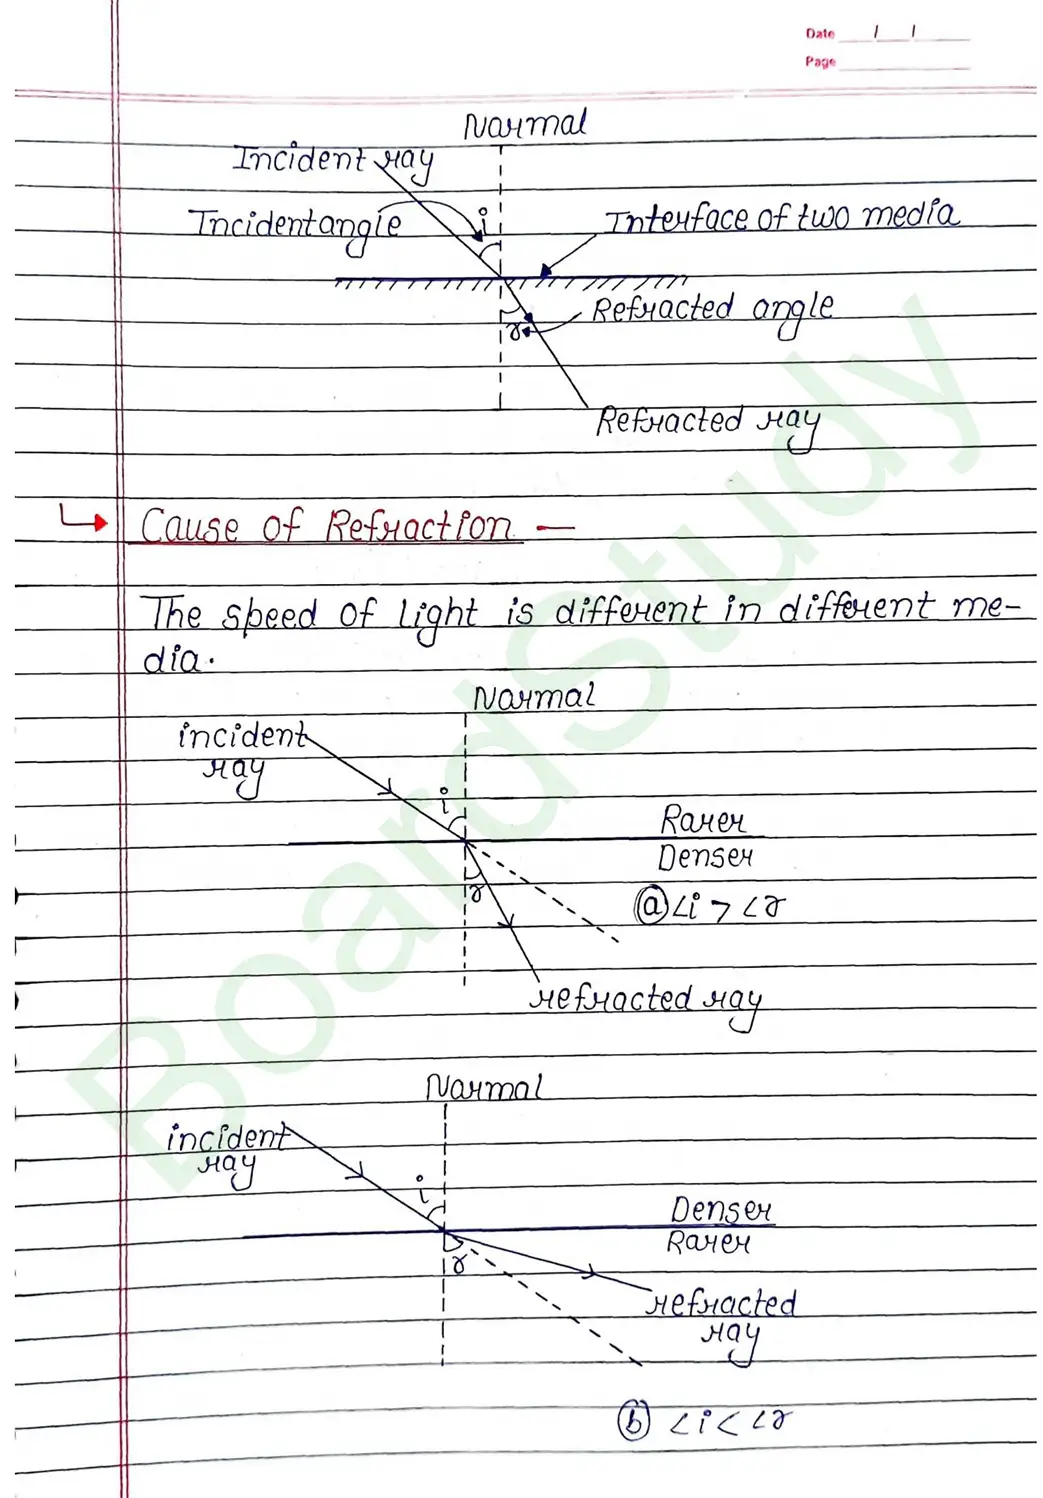 Date / /
Page
Normal
Incident ray
Incident angle i
Interface of two media
Refracted angle
r
Refracted ray
Cause of Refraction —
The speed of light is different in different me-
dia.
Normal
incident
ray
i
Rarer
Denser
r
(a) ∠i > ∠r
refracted ray
Normal
incident
ray
i
Denser
Rarer
r
refracted
ray
(b) ∠i < ∠r
BoardStudy